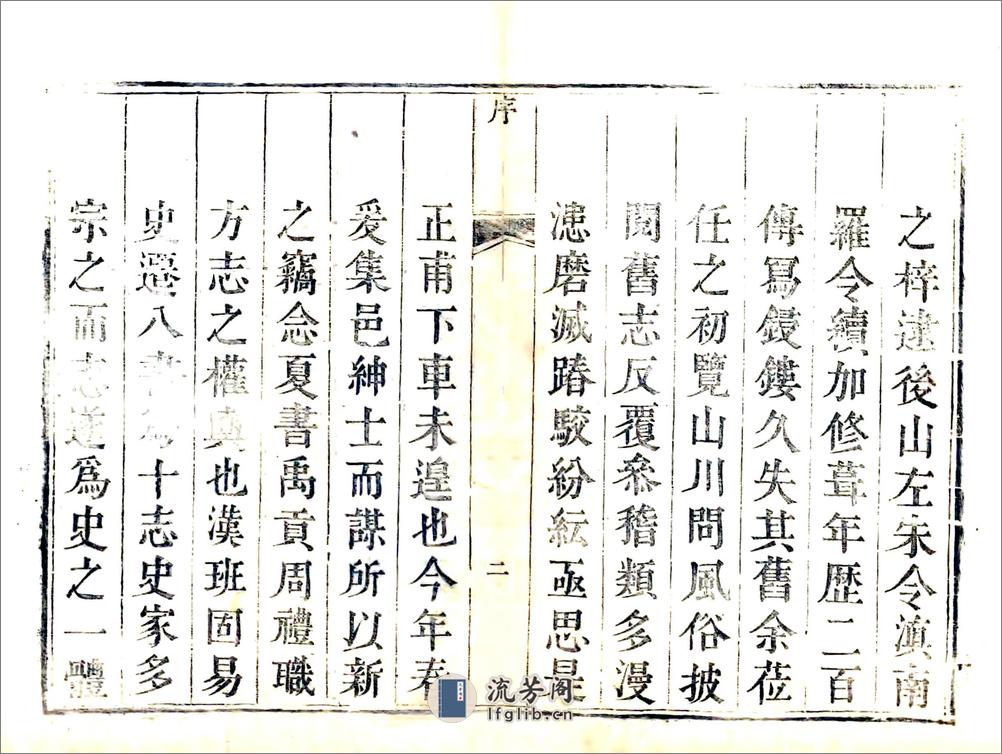 之梓逮後山左宋令滇南
羅令續加修葺年歷二百
傳寫鋟鏤久失其舊余莅
任之初覽山川問風俗披
閱舊志反覆叅稽類多漫
漶磨滅踳駁紛紜亟思是
序
二
正甫下車未遑也今年春
爰集邑紳士而謀所以新
之竊念夏書禹貢周禮職
方志之權輿也漢班固易
史遷八書為十志史家多
宗之而志遂爲史之一體
流芳阁
lfglib.cn